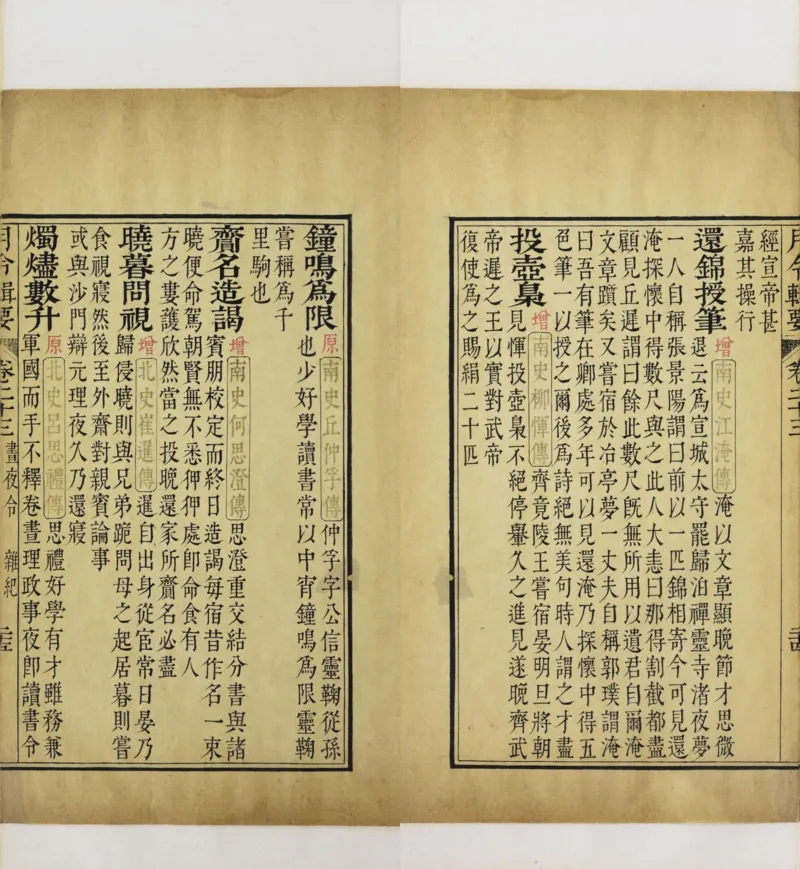 月令輯要 卷二十三
經宣帝甚
嘉其操行
還錦授筆 增 南史江淹傳 淹以文章顯晚節才思微
退云爲宣城太守罷歸泊禪靈寺渚夜夢
一人自稱張景陽謂曰前以一匹錦相寄今可見還
淹探懷中得數尺與之此人大恚曰那得割截都盡
顧見丘遲謂曰餘此數尺旣無所用以遺君自爾淹
文章躓矣又嘗宿於冶亭夢一丈夫自稱郭璞謂淹
曰吾有筆在卿處多年可以見還淹乃探懷中得五
色筆一以授之爾後爲詩絕無美句時人謂之才盡
投壺梟 增 南史柳惲傳 齊竟陵王嘗宿晏明旦將朝
見惲投壺梟不絕停轝久之進見遂晚齊武
帝遲之王以實對武帝
復使爲之賜絹二十匹
鐘鳴爲限 原 南史丘仲孚傳 仲孚字公信靈鞠從孫
也少好學讀書常以中宵鐘鳴爲限靈鞠
嘗稱爲千
里駒也
齎名造謁 增 南史何思澄傳 思澄重交結分書與諸
賓朋校定而終日造謁每宿昔作名一束
曉便命駕朝賢無不悉狎狎處卽命食有人
方之婁護欣然當之投晚還家所齎名必盡
曉暮問視 增 北史崔暹傳 暹自出身從宦常日晏乃
歸侵曉則與兄弟跪問母之起居暮則嘗
食視寢然後至外齋對親賓論事
或與沙門辯元理夜久乃還寢
燭燼數升 原 北史呂思禮傳 思禮好學有才雖務兼
軍國而手不釋卷晝理政事夜卽讀書令
月令輯要 卷二十三 晝夜令 雜紀